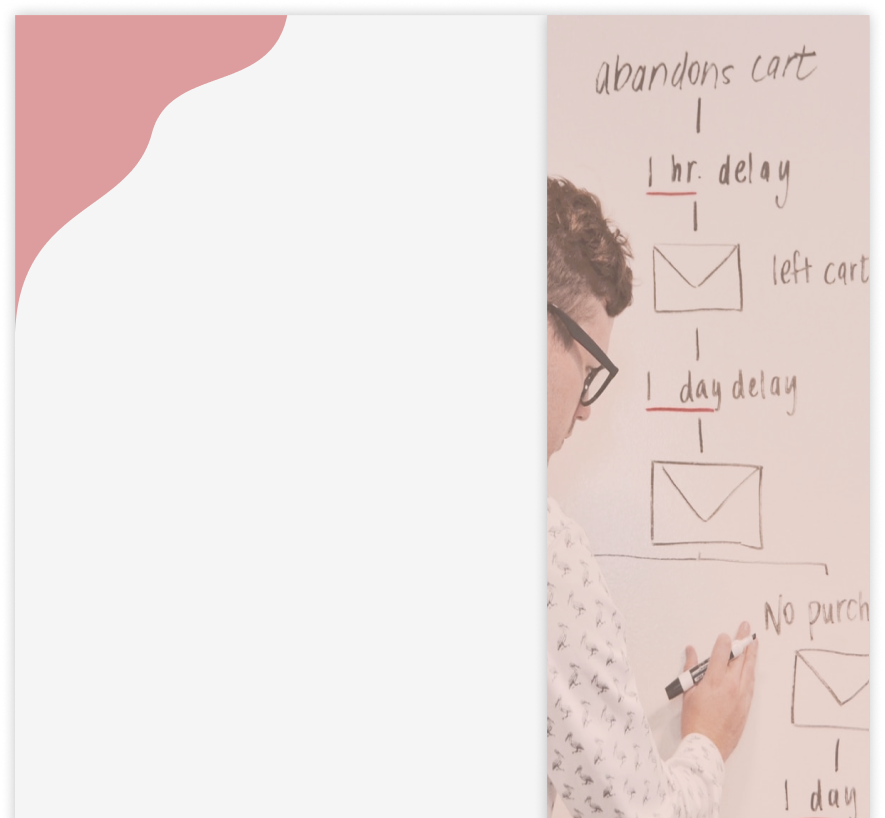 abandons cart
1 hr. delay
left cart
1 day delay
No purch
1 day